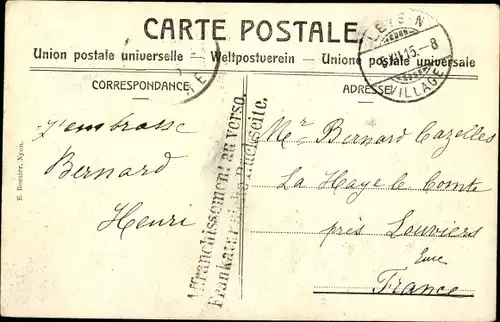 CARTE POSTALE
Union postale universelle — Weltpostverein — Unione postale universale
CORRESPONDANCE
ADRESSE
LEYSIN
15.-8
VILLAGE
Affranchissement au verso.
Frankatur Rückseite.
E. Rossier, Nyon.
j'embrasse
Bernard
Henri
Mr Bernard Cazelles
La Haye le Comte
près Louviers
Eure
France